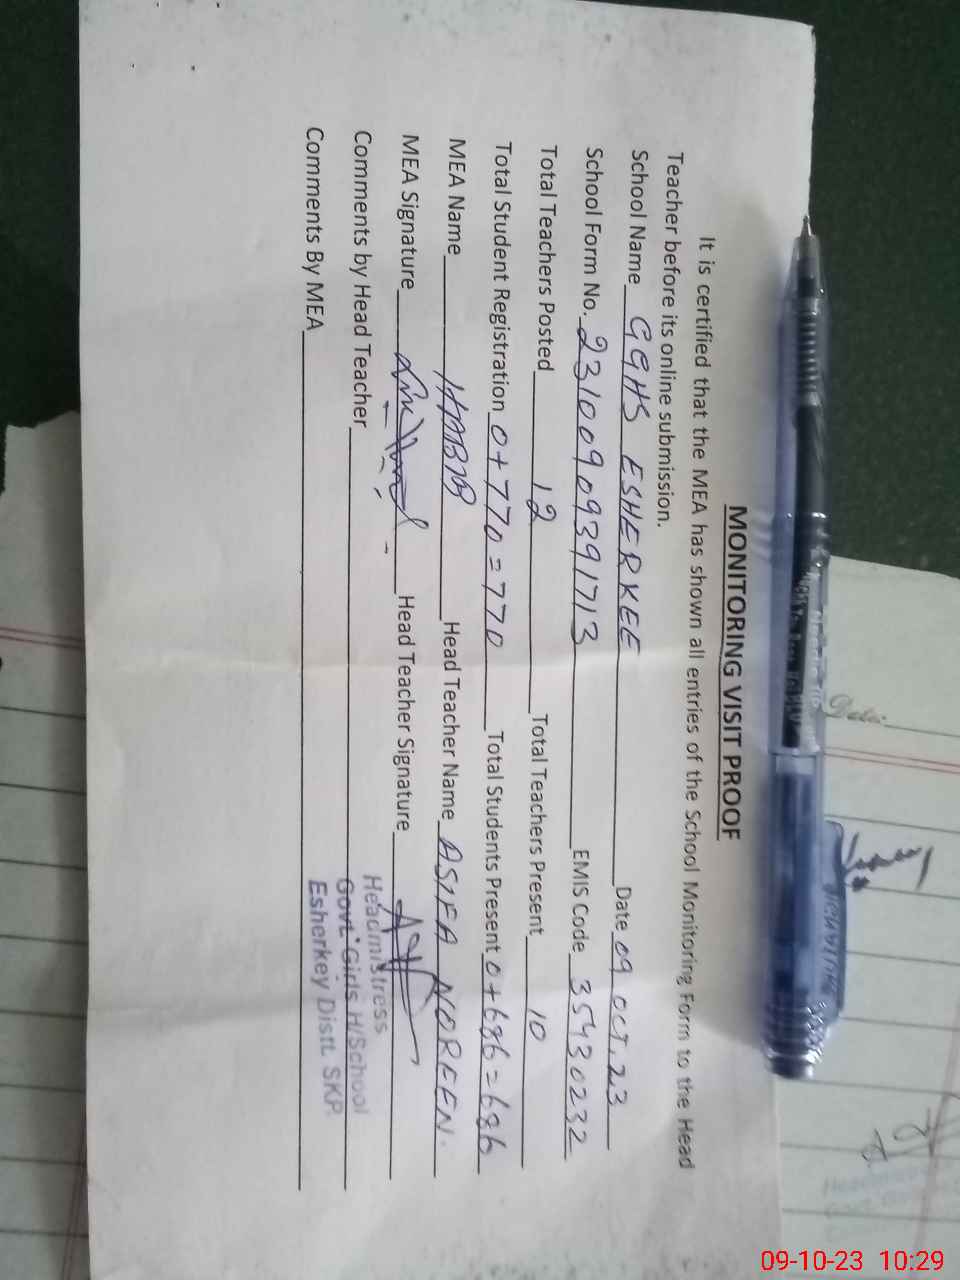 MONITORING VISIT PROOF
It is certified that the MEA has shown all entries of the School Monitoring Form to the Head
Teacher before its online submission.
School Name GGHS ESHERKEE Date 09 OCT, 23
School Form No. 23100909391713 EMIS Code 35430232
Total Teachers Posted 12 Total Teachers Present 10
Total Student Registration 0+770=770 Total Students Present 0+686=686
MEA Name HABIB Head Teacher Name ASIFA NOREEN.
MEA Signature Head Teacher Signature
Comments by Head Teacher
Comments By MEA
Headmistress
Govt. Girls H/School
Esherkey Distt. SKP.
Date:
09-10-23 10:29